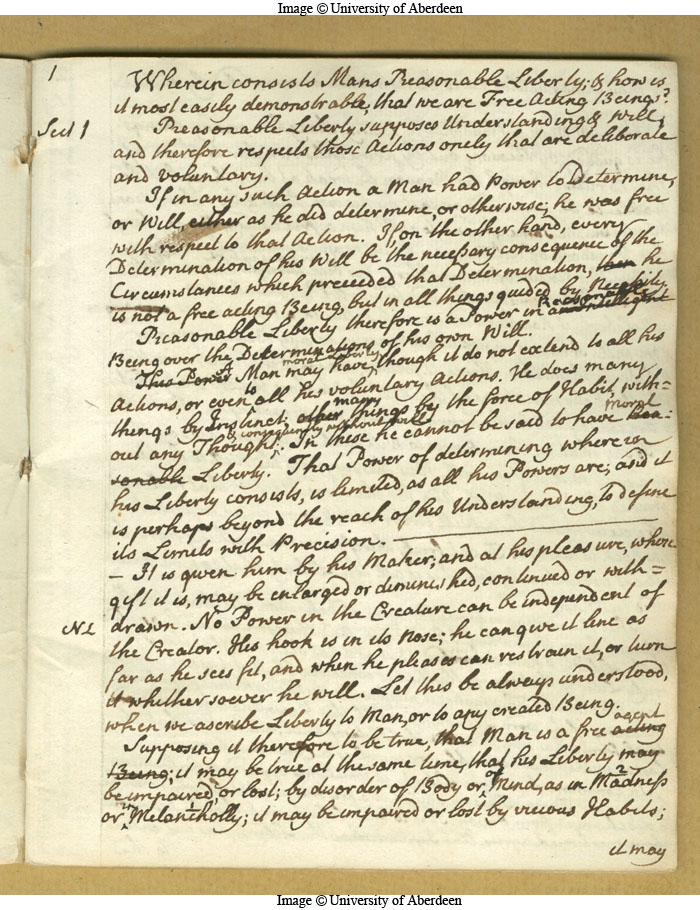 Image © University of Aberdeen
1
Wherein consists Mans Reasonable Liberty; & how is
it most easily demonstrable, that we are Free Acting Beings?
Sect 1
Reasonable Liberty supposes Understanding & Will,
and therefore respects those Actions onely that are deliberate
and voluntary.
If in any such Action a Man had Power to Determine,
or Will, either as he did determine, or otherwise; he was free
with respect to that Action. If on the other hand, every
Determination of his Will be the necessary consequence of the
Circumstances which preceeded that Determination, then he
is not a free acting Being, but in all things guided by Necessity.
Reasonable
Reasonable Liberty therefore is a Power in an Intelligent
Being over the Determinations of his own Will.
moral Liberty
This Power Man may have, though it do not extend to all his
to
Actions, or even all his voluntary Actions. He does many
many
things by Instinct; other things by the force of Habit, with=
& consequently without Will
moral
out any Thought; In these he cannot be said to have Rea=
sonable Liberty. That Power of determining wherein
his Liberty consists, is limited, as all his Powers are; and it
is perhaps beyond the reach of his Understanding, to define
its Limits with Precision.
— It is given him by his Maker; and at his pleasure, whose
gift it is, may be enlarged or diminished, continued or with=
NL
drawn. No Power in the Creature can be independent of
the Creator. His hook is in its nose; he can give it line as
far as he sees fit, and when he pleases can restrain it, or turn
it whithersoever he will. Let this be always understood,
when we ascribe Liberty to Man, or to any created Being.
agent
Supposing it therefore to be true, that Man is a free acting
Being; it may be true at the same time, that his Liberty may
of
be impaired, or lost; by disorder of Body or Mind, as in Madness
2
in
1
or Melancholly; it may be impaired or lost by vicious Habits;
it may
Image © University of Aberdeen